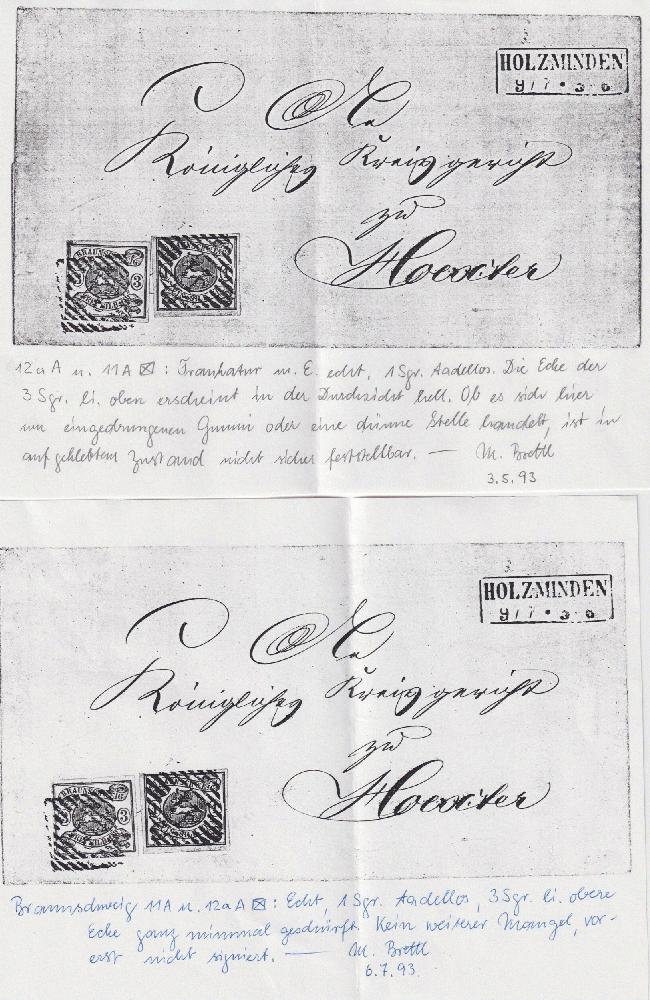 HOLZMINDEN
9/7 • 3-6
An
Königliches Kreisgericht
zu
Hoexter
BRAUNSCHWEIG
3
12a A u. 11 A ☒: Frankatur m. E. echt, 1 Sgr. tadellos. Die Ecke der
3 Sgr. li. oben erscheint in der Durchsicht hell. Ob es sich hier
um eingedrungenen Gummi oder eine dünne Stelle handelt, ist in
aufgeklebtem Zustand nicht sicher feststellbar. — M. Brettl
3.5.93
HOLZMINDEN
9/7 • 3-6
An
Königliches Kreisgericht
zu
Hoexter
BRAUNSCHWEIG
3
Braunschweig 11A u. 12a A ☒: Echt, 1 Sgr. tadellos, 3 Sgr. li. obere
Ecke ganz minimal geschürft. Kein weiterer Mangel, vor-
erst nicht signiert. — M. Brettl
6.7.93